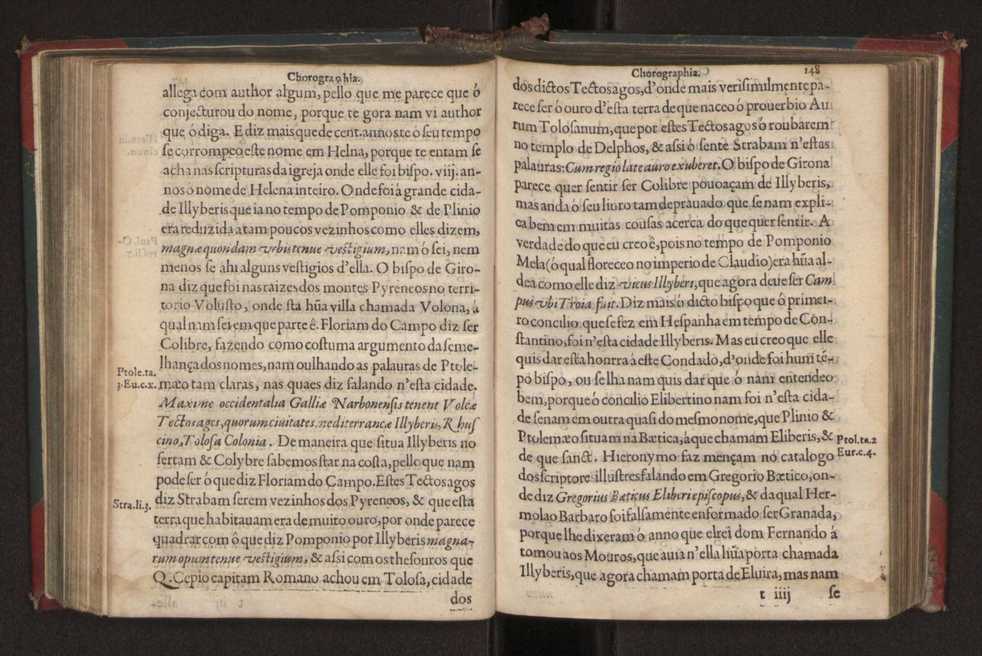 Chorographia.
allega com author algum, pello que me parece que ó
conjecturou do nome, porque te gora nam vi author
que ó diga. E diz mais que de cent. annos te ó seu tempo
se corrompeo este nome em Helna, porque te entam se
acha nas scripturas da igreja onde elle foi bispo. viij. an-
nos ó nome de Helena inteiro. Onde foi á grande cida-
de Illyberis que ia no tempo de Pomponio & de Plinio
era reduzida a tam poucos vezinhos como elles dizem,
magnæ quondam vrbis tenue vestigium, nam ó sei, nem
menos se ahi alguns vestigios d'ella. O bispo de Giro-
na diz que foi nas raizes dos montes Pyreneos no terri-
torio Volusto, onde sta hũa villa chamada Volona, á
qual nam sei em que parte ê. Floriam do Campo diz ser
Colibre, fazendo como costuma argumento da seme-
lhança dos nomes, nam oulhando as palauras de Ptole-
Ptole.ta.
3.Eu.c.x.
mæo tam claras, nas quaes diz falando n'esta cidade.
Maxime occidentalia Galliæ Narbonensis tenent Volcæ
Tectosages, quorum ciuitates mediterraneæ Illyberis, Rhus
cino, Tolosa Colonia. De maneira que situa Illyberis no
sertam & Colybre sabemos star na costa, pello que nam
pode ser ó que diz Floriam do Campo. Estes Tectosagos
Stra.li.3.
diz Strabam serem vezinhos dos Pyreneos, & que esta
terra que habitauam era de muito ouro, por onde parece
quadrar com ó que diz Pomponio por Illyberis magna-
rum opum tenue vestigium, & assi com os thesouros que
Q. Cepio capitam Romano achou em Tolosa, cidade
dos
Chorographia.
148
dos dictos Tectosagos, d'onde mais verisimilmente pa-
rece ser ó ouro d'esta terra de que naceo ó prouerbio Au
rum Tolosanum, que por estes Tectosagos ó roubarem
no templo de Delphos, & assi ó sente Strabam n'estas
palauras: Cum regio late auro exuberet. O bispo de Girona
parece quer sentir ser Colibre pouoaçam de Illyberis,
mas anda ó seu liuro tam deprauado que se nam expli-
ca bem em muitas cousas acerca do que quer sentir. A
verdade do que eu creo ê, pois no tempo de Pomponio
Mela (ó qual floreceo no imperio de Claudio) era hũa al-
dea como elle diz vicus Illyberi, que agora deue ser Cam
pus vbi Troia fuit. Diz mais ó dicto bispo que ó primei-
ro concilio que se fez em Hespanha em tempo de Con-
stantino, foi n'esta cidade Illyberis. Mas eu creo que elle
quis dar esta honrra á este Condado, d'onde foi hum tẽ-
po bispo, ou se lha nam quis dar que ó nam entendeo
bem, porque ó concilio Elibertino nam foi n'esta cida-
de senam em outra quasi do mesmo nome, que Plinio &
Ptolemæo situam na Bætica, á que chamam Eliberis, &
Ptol.ta.2
Eur.c.4.
de que sanct. Hieronymo faz mençam no catalogo
dos scriptore illustres falando em Gregorio Bætico, on-
de diz Gregorius Bæticus Eliberi episcopus, & da qual Her-
molao Barbaro foi falsamente enformado ser Granada,
porque lhe dixeram ó anno que elrei dom Fernando á
tomou aos Mouros, que auia n'ella hũa porta chamada
Illyberis, que agora chamam porta de Eluira, mas nam
t iiij
se